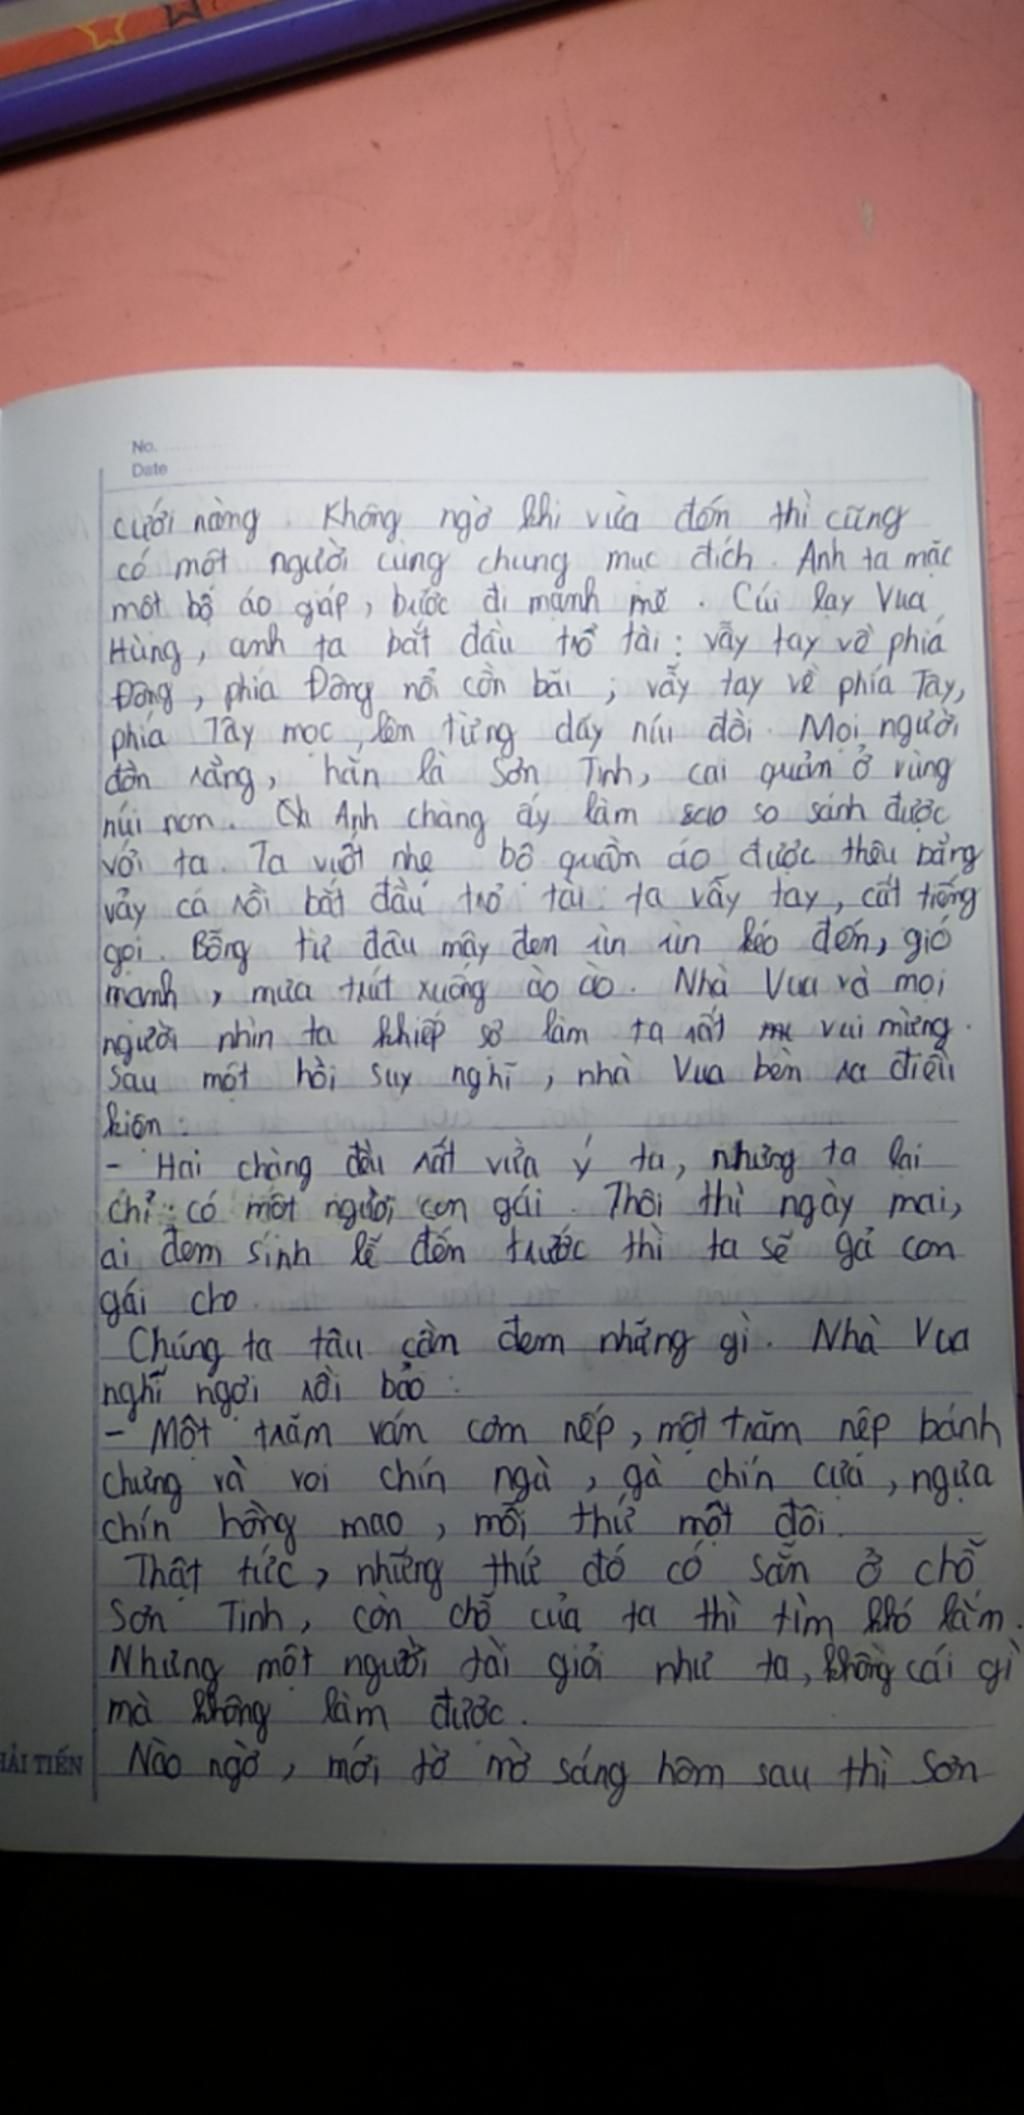 No.
Date
cưới nàng. Không ngờ khi vừa đến thì cũng
có một người cùng chung mục đích. Anh ta mặc
một bộ áo giáp, bước đi mạnh mẽ. Cúi lạy Vua
Hùng, anh ta bắt đầu trổ tài: vẫy tay về phía
Đông, phía Đông nổi cồn bãi; vẫy tay về phía Tây,
phía Tây mọc lên từng dãy núi đồi. Mọi người
đồn rằng, hắn là Sơn Tinh, cai quản ở vùng
núi non. Anh chàng ấy làm sao so sánh được
với ta. Ta vuốt nhẹ bộ quần áo được thêu bằng
vảy cá rồi bắt đầu trổ tài: ta vẫy tay, cất tiếng
gọi. Bỗng từ đâu mây đen ùn ùn kéo đến, gió
mạnh, mưa trút xuống ào ào. Nhà Vua và mọi
người nhìn ta khiếp sợ làm ta rất vui mừng.
Sau một hồi suy nghĩ, nhà Vua bèn ra điều
kiện:
- Hai chàng đều rất vừa ý ta, nhưng ta lại
chỉ có một người con gái. Thôi thì ngày mai,
ai đem sính lễ đến trước thì ta sẽ gả con
gái cho.
Chúng ta tâu cần đem những gì. Nhà Vua
nghĩ ngợi rồi bảo:
- Một trăm ván cơm nếp, một trăm nệp bánh
chưng và voi chín ngà, gà chín cựa, ngựa
chín hồng mao, mỗi thứ một đôi.
Thật tức, những thứ đó có sẵn ở chỗ
Sơn Tinh, còn chỗ của ta thì tìm khó lắm.
Nhưng một người tài giỏi như ta, không cái gì
mà không làm được.
HẢI TIẾN
Nào ngờ, mới tờ mờ sáng hôm sau thì Sơn